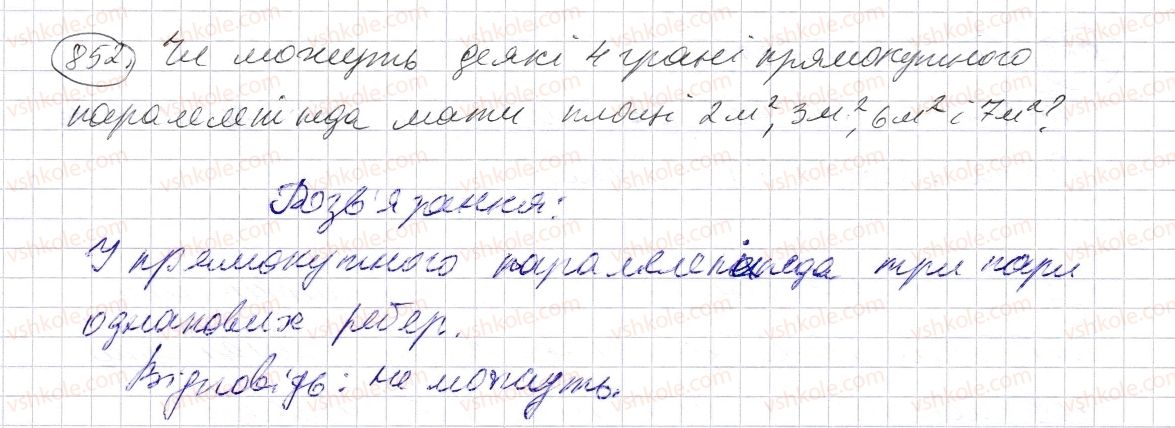 852. Чи можуть деякі 4 грані прямокутного
паралелепіпеда мати площі 2м², 3м², 6м² і 7м²?
Розв'язання:
У прямокутного паралелепіпеда три пари
однакових ребер.
Відповідь: не можуть.